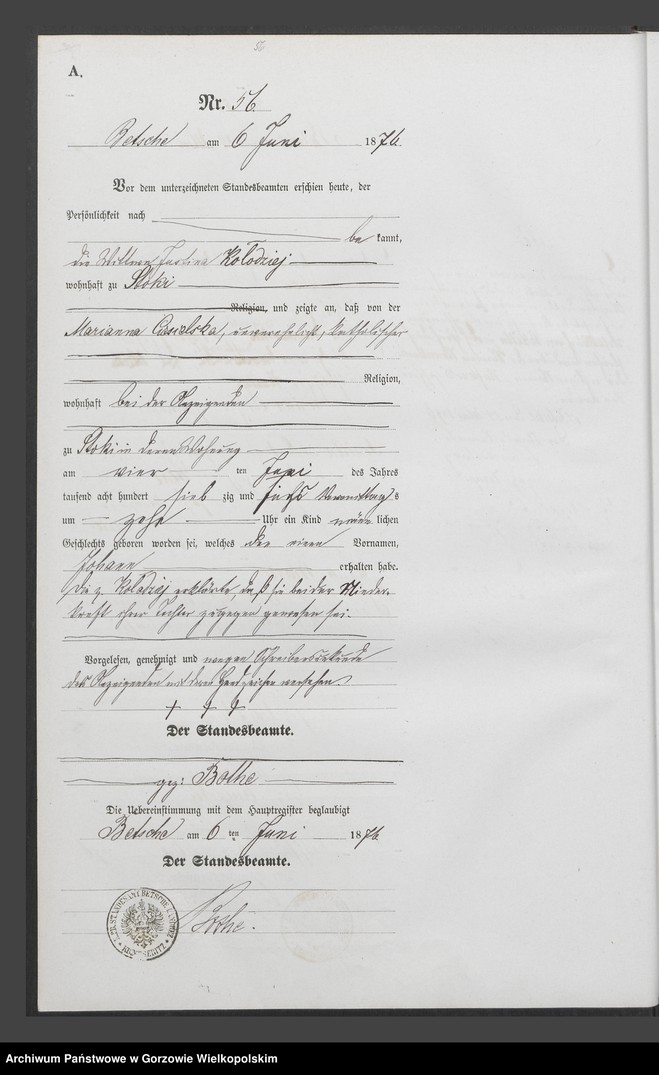 56
A.
Nr. 56
Betsche am 6 Juni 1876
Vor dem unterzeichneten Standesbeamten erschien heute, der
Persönlichkeit nach
be kannt,
die Wittwe Kolodziej
wohnhaft zu Stoki
Religion, und zeigte an, daß von der
Marianna unverehelicht, katholischer
Religion,
wohnhaft bei der Anzeigenden
zu Stoki in deren Wohnung
am vier ten Juni des Jahres
tausend acht hundert sieb zig und sechs Vormittag s
um zehn Uhr ein Kind männ lichen
Geschlechts geboren worden sei, welches den Vornamen,
Johann erhalten habe.
Die Kolodziej erklärte daß sie bei der Nieder-
kunft ihrer Tochter zugegen gewesen sei.
Vorgelesen, genehmigt und wegen Schreibensunkunde
der Anzeigenden mit deren Handzeichen versehen.
+ + +
Der Standesbeamte.
gez: Bothe
Die Uebereinstimmung mit dem Hauptregister beglaubigt
Betsche am 6 ten Juni 1876
Der Standesbeamte.
Bothe.
Archiwum Państwowe w Gorzowie Wielkopolskim